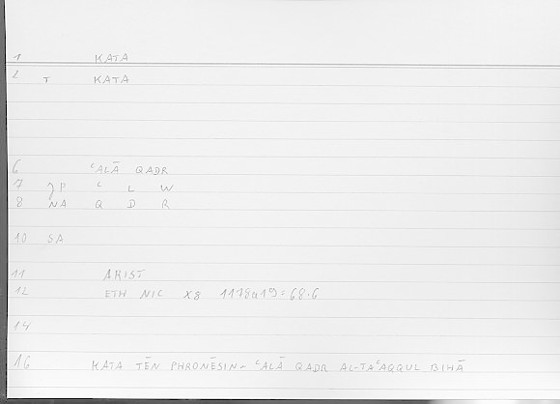 1 KATA
2 T KATA
6 ʿALĀ QADR
7 ʿ L W
8 NA Q D R
10 SA
11 ARIST
12 ETH NIC X8 1178a19 = 68.6
14
16 KATA TĒN PHRONĒSIN - ʿALĀ QADR AL-TAʿAQQUL BIHĀ